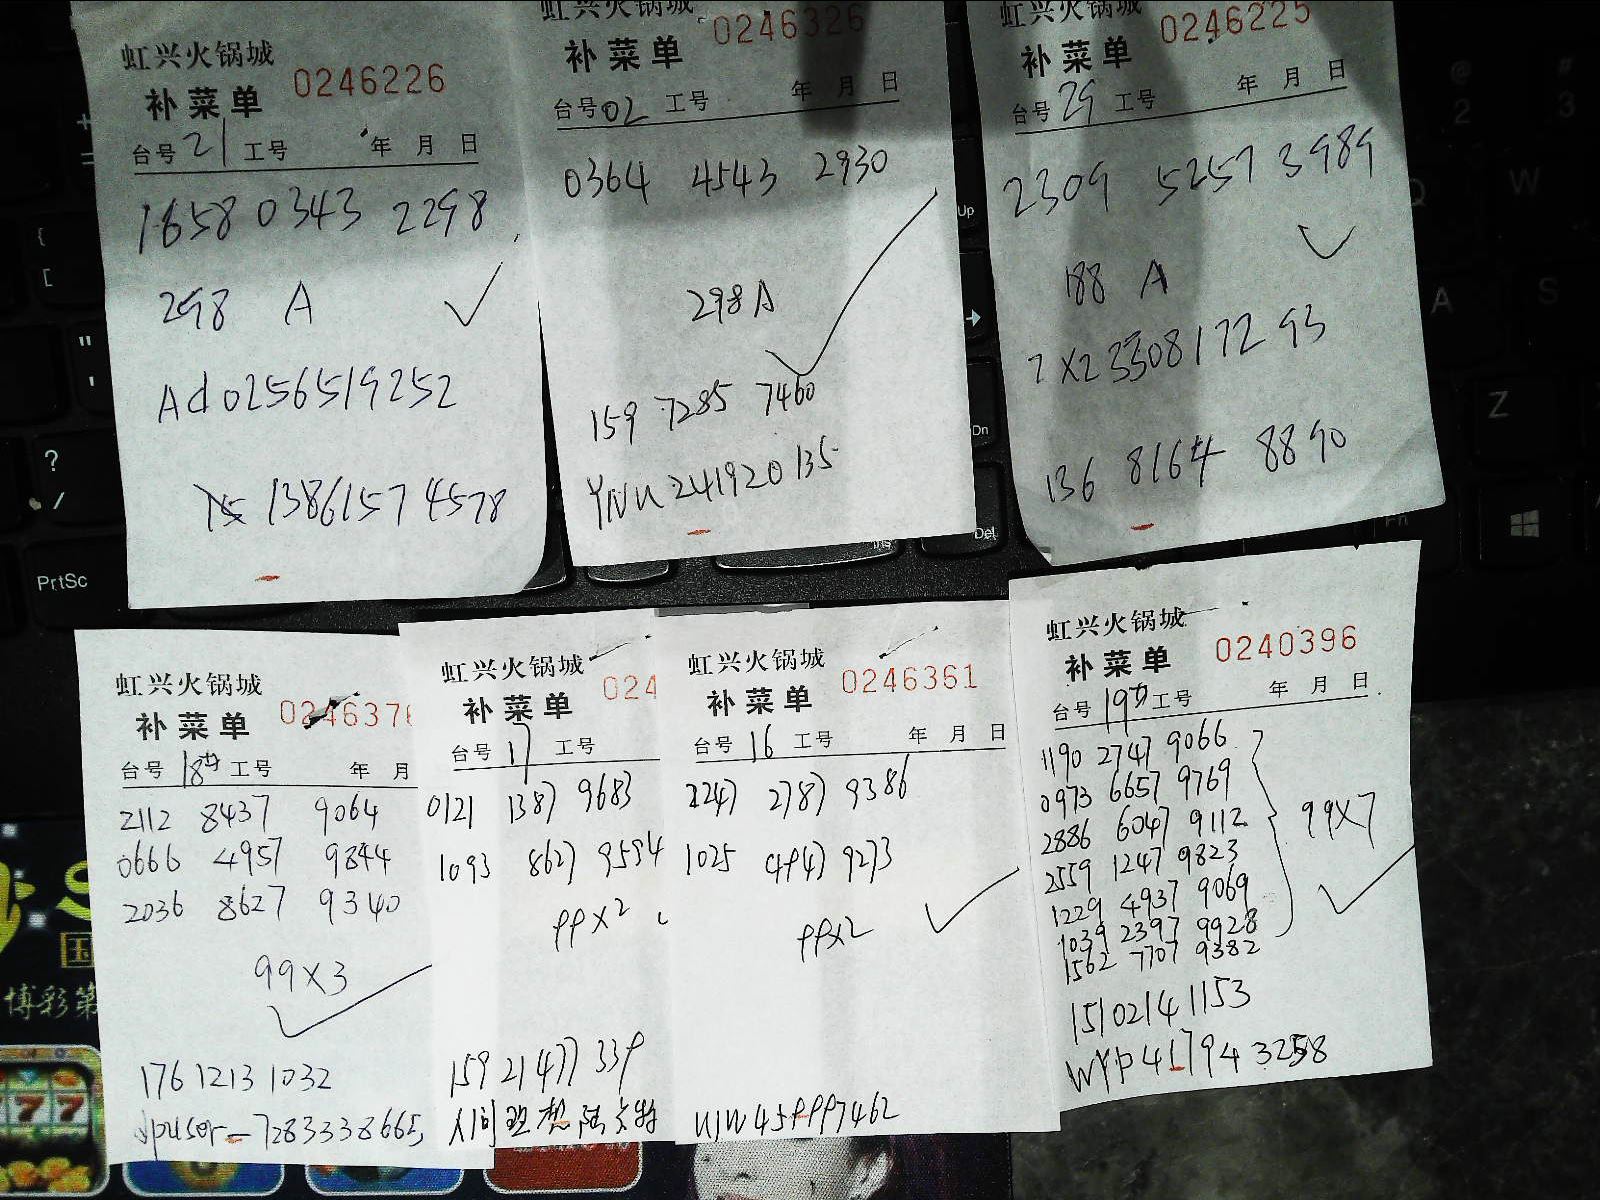 虹兴火锅城
补菜单 0246226
台号 21 工号 年 月 日
1658 0343 2298
298 A
Ad0256519252
13861574578
虹兴火锅城
补菜单 0246326
台号 02 工号 年 月 日
0364 4543 2930
298A
159 7285 7460
YNU 241920135
虹兴火锅城
补菜单 0246225
台号 29 工号 年 月 日
2309 5257 3989
188 A
136 8164 8890
虹兴火锅城
补菜单 0246376
台号 18 工号 年 月
2112 8437 9064
0666 4957 9844
2036 8627 9340
99X3
176 1213 1032
7283338665
虹兴火锅城
补菜单 024
台号 17 工号
0121 1387 9683
1093 8627 9594
99X2
159 21477 339
人间理想
虹兴火锅城
补菜单 0246361
台号 16 工号 年 月 日
2247 2787 9386
1025 4947 9273
99X2
WW4599997462
虹兴火锅城
补菜单 0240396
台号 19 工号 年 月 日
1190 2747 9066
0973 6657 9769
2886 6047 9112
2559 1247 9823
1229 4937 9069
1039 2397 9928
1562 7707 9382
99X7
15102141153
WYP417943258
PrtSc
Up
Dn
Ins
Del
Z
A
S
W
Q
博彩第
国